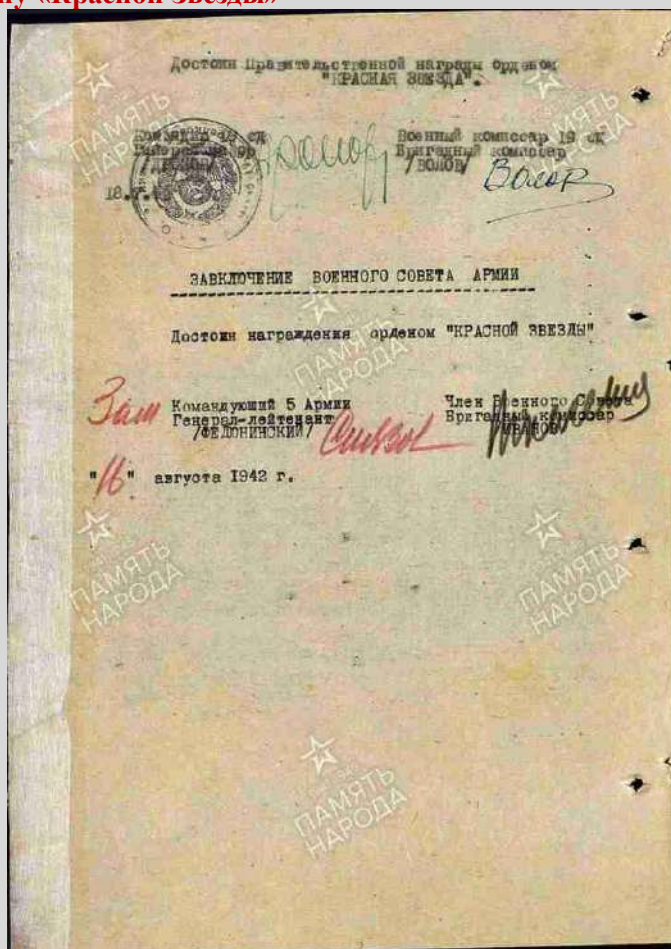 ну «Красной Звезды»
Достоин Правительственной награды орденом
"КРАСНАЯ ЗВЕЗДА".
Командир 19 сд
Военный комиссар 19 сд
Бригадный комиссар
/ВОЛОВ/
Волов
18.
ЗАВКЛЮЧЕНИЕ ВОЕННОГО СОВЕТА АРМИИ
Достоин награждения орденом "КРАСНОЙ ЗВЕЗДЫ"
Зам Командующий 5 Армии
Генерал-лейтенант
/ФЕДЮНИНСКИЙ/
Член Военного Совета
Бригадный комиссар
ИВАНОВ
"16" августа 1942 г.
ПАМЯТЬ
НАРОДА
ПАМЯТЬ
НАРОДА
ПАМЯТЬ
НАРОДА
ПАМЯТЬ
НАРОДА
ПАМЯТЬ
НАРОДА
ПАМЯТЬ
НАРОДА